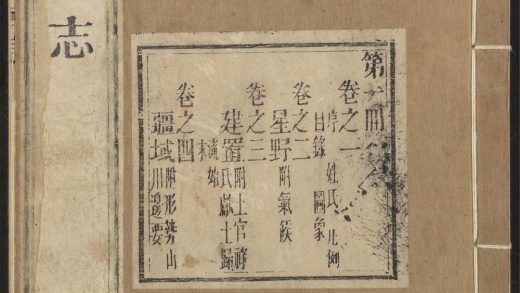 第一冊
卷之一
序 姓氏 凡例
目錄 圖象
卷之二
星野 附氣候
卷之三
建置 附土官祿氏獻土歸
流始末
卷之四
疆域 附形勢山川要
志